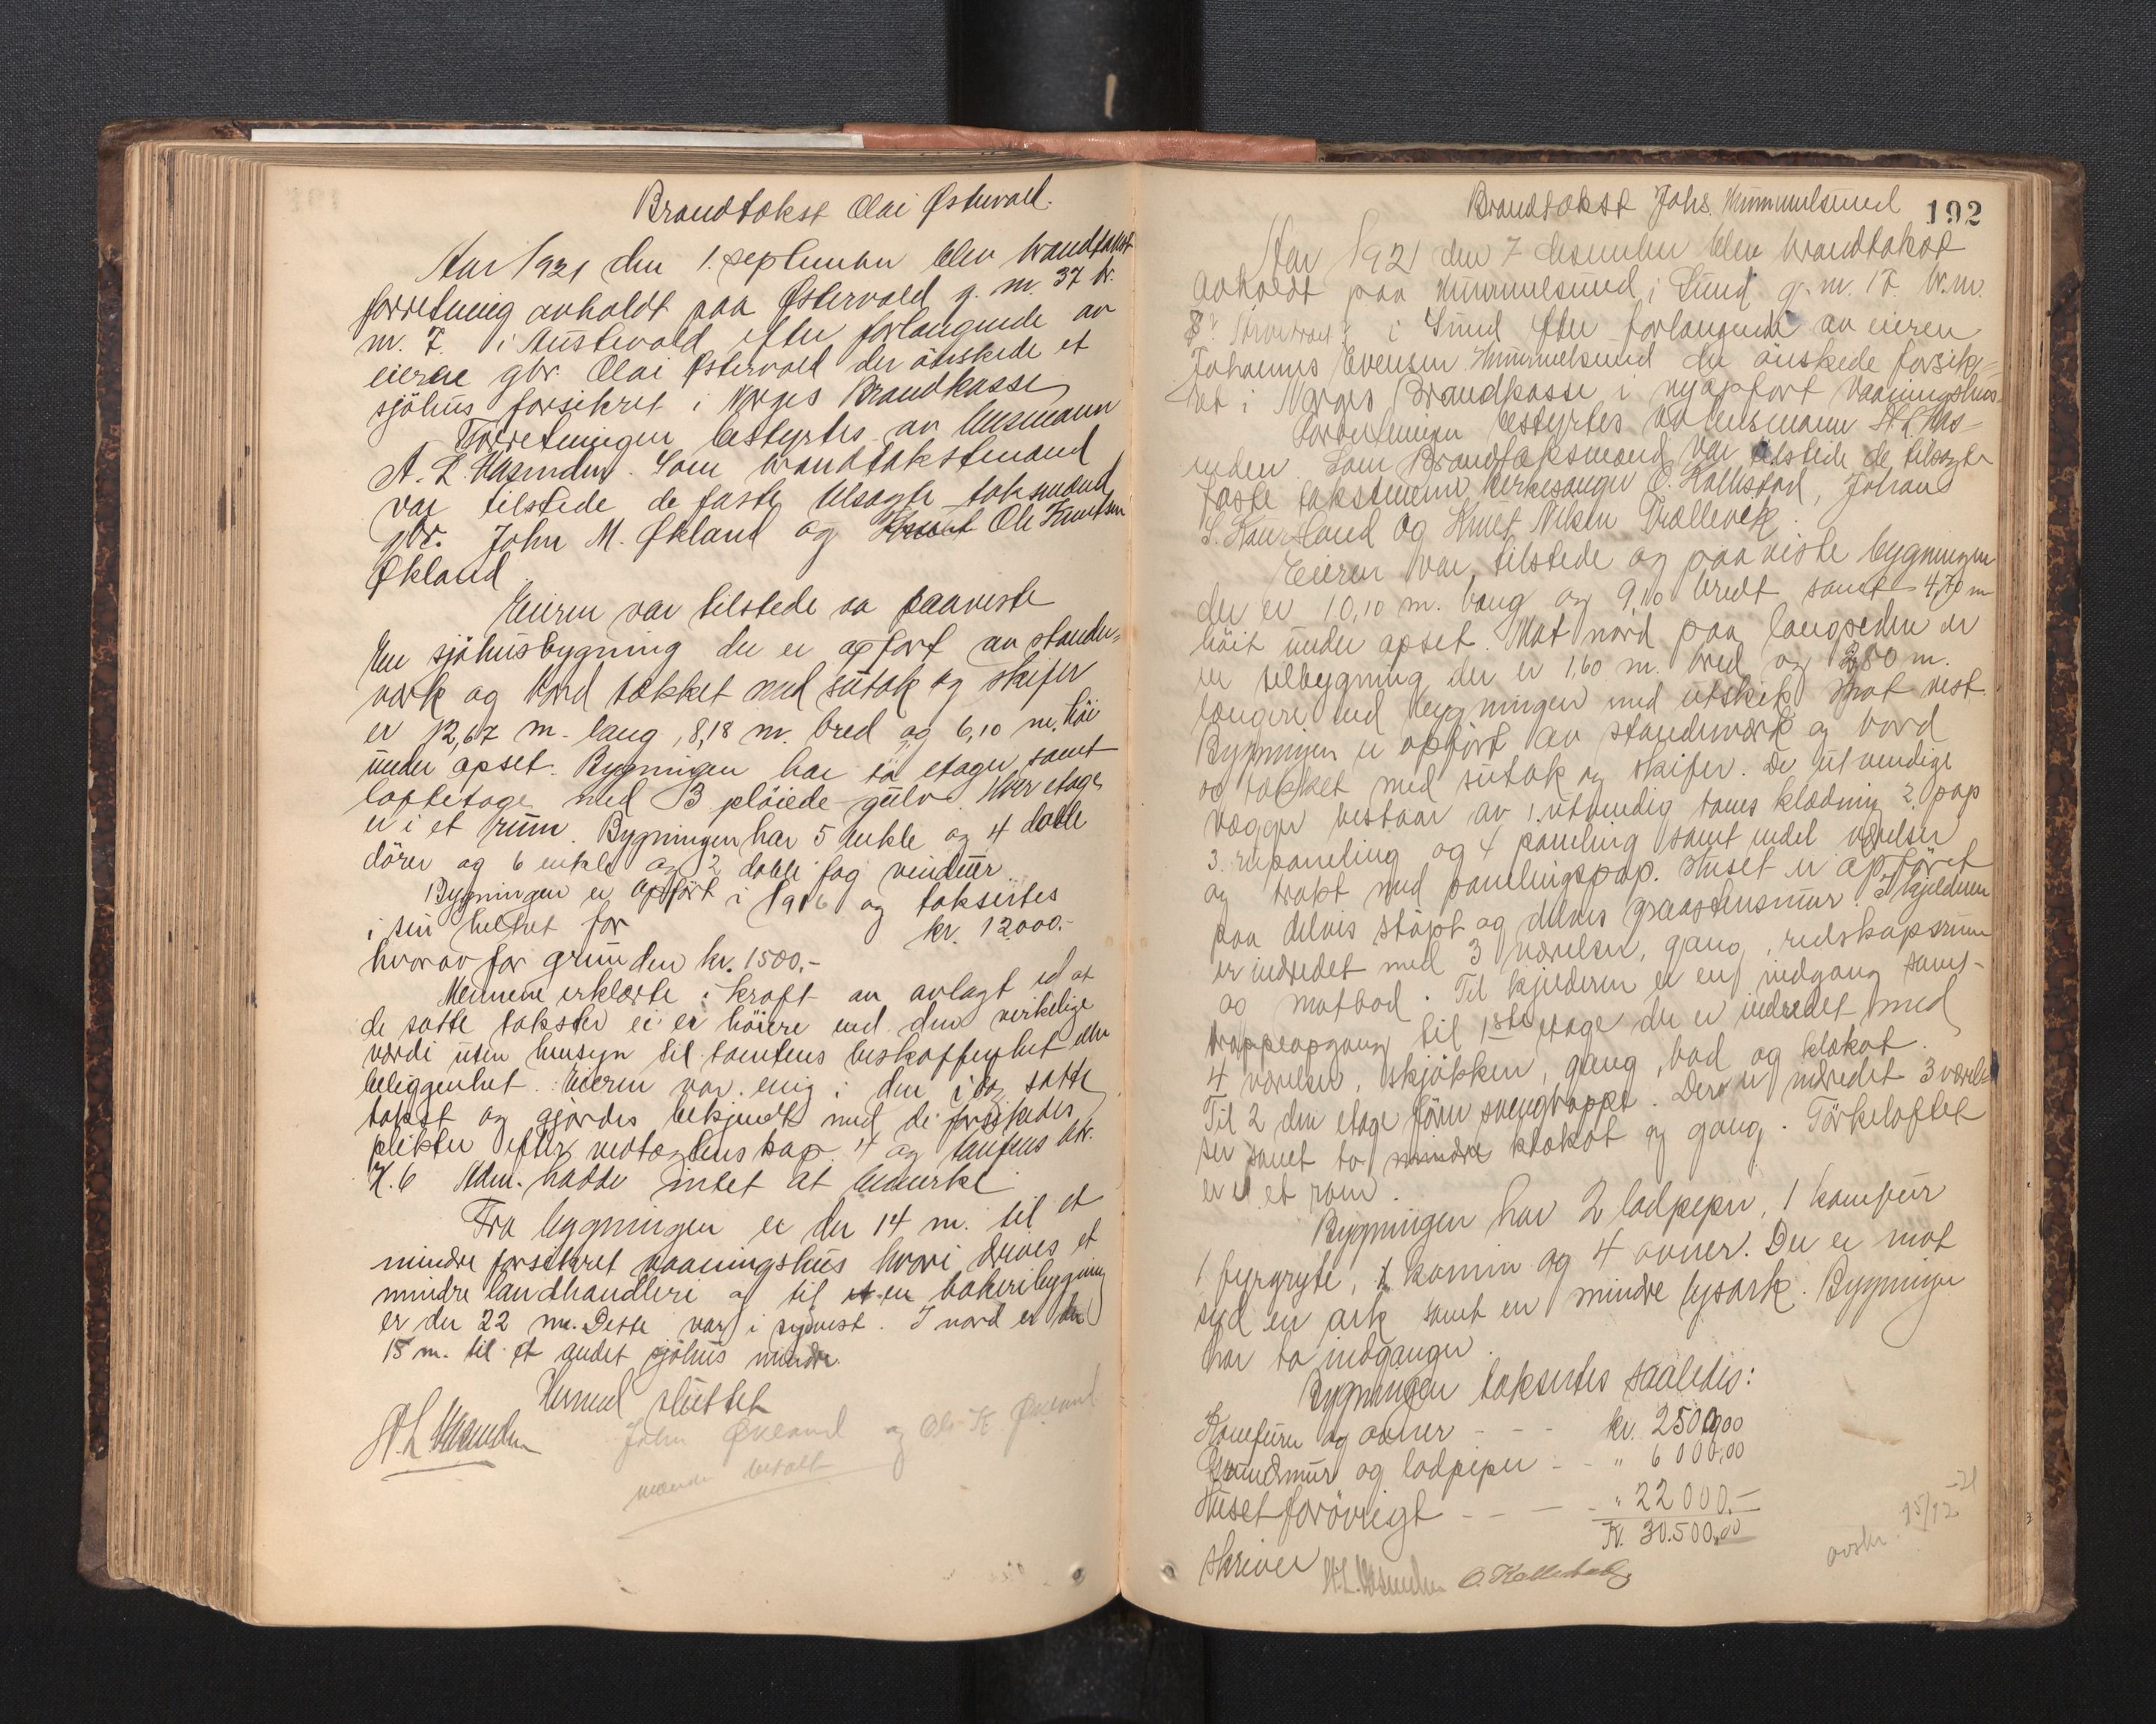 Brandtakst Olai Østervold.
Aar 1921 den 1. september blev brandtakst
forretning avholdt paa Østervold g. nr. 37 br.
nr. 7. i Austevold efter forlangende av
eieren gbr. Olai Østervold der önskede et
sjöhus forsikret i Norges Brandkasse
Forretningen bestyrtes av lensmann
A. L. Som brandtakstmænd
var tilstede de faste tilsagte takstmænd
gbr. John M. Økland og Ole Knutsen
Økland
Eieren var tilstede og paaviste
En sjöhusbygning der er opfört av stender-
værk og bord tækket med sutak og skifer
er 12,67 m. lang, 8,18 m. bred og 6,10 m. höi
under opset. Bygningen har to etager samt
loftetage med 3 plöiede gulv. Hver etage
er i et rum. Bygningen har 5 enkle og 4 doble
dörer og 6 enkle og 2 doble fag vinduer
Bygningen er opfört i 1916 og taksertes
i sin helhet for kr. 12000.-
hvorav for grunden kr. 1500.-
Mennene erklærte i kraft av avlagt ed at
de satte takster ei er höiere end den virkelige
værdi uten hensyn til tomtens beskaffenhet eller
beliggenhet. Eieren var enig i den i dag satte
takst og gjordes bekjendt med de forskjellige
plikter efter vedtægtens kap. 4 og lovens
§. 6 hadde intet at bemerke
Fra bygningen er der 14 m. til et
mindre forsikret vaaningshus hvori drives et
mindre landhandleri og til en bakeribygning
er der 22 m. Dette var i sydvest. I nord er der
15 m. til et andet sjöhus mindre.
Hermed sluttet
John Økland og Ole K Økland
betalt
Brandtakst Johs. Hummelsund 192
Aar 1921 den 7 desember blev brandtakst
avholdt paa Hummelsund i Sund g. nr. 17. br. nr.
8 i Sund efter forlangende av eieren
Johannes Evensen Hummelsund der önskede forsik-
ret i Norges Brandkasse i nyopfört vaaningshus
Forretningen bestyrtes av lensmann A L
Som Brandtakstmænd var tilstede de tilsagte
faste takstmenn kirkesanger O. Kallestad, Johan
S. og Knut Nilsen Trællevik.
Eieren var tilstede og paaviste bygningen
der er 10,10 m. lang og 9,10 bredt samt 4,70 m
höit under opset. Mot nord paa langsiden er
en tilbygning der er 1,60 m. bred og 2,80 m.
længere end bygningen med utskik mot vest.
Bygningen er opfört av stenderværk og bord
og tækket med sutak og skifer. De utvendige
vægger bestaar av 1. utvendig klædning 2. pap
3. rupaneling og 4 paneling samt indel værelser
og trukt med panelingspap. Huset er opföret
paa delvis stöpt og delvis graastensmur. I kjelderen
er indredet med 3 værelser, gang, redskapsrum
og matbod. Til kjelderen er en indgang samt
trappeopgang til 1ste etage der er indredet med
4 værelser, skjökken, gang, bad og klokat.
Til 2 den etage förer svingtrappe. Der er indredet 3 værel-
ser samt to mindre klokat og gang. Törkeloftet
er i et rom.
Bygningen har 2 ladpiper, 1 komfur
1 bryggryte, 1 kamin og 4 ovner. Der er mot
syd en ark samt en mindre lysark. Bygningen
har to indganger.
Bygningen taksertes saaledes:
Komfurer og ovner - - - kr. 2500,00
Grundmur og ladpiper - - " 6 000,00
Huset forövrigt - - - " 22000.-
Kr. 30.500,00
skriver
O. Kallestad
avskr. 15/12 -21